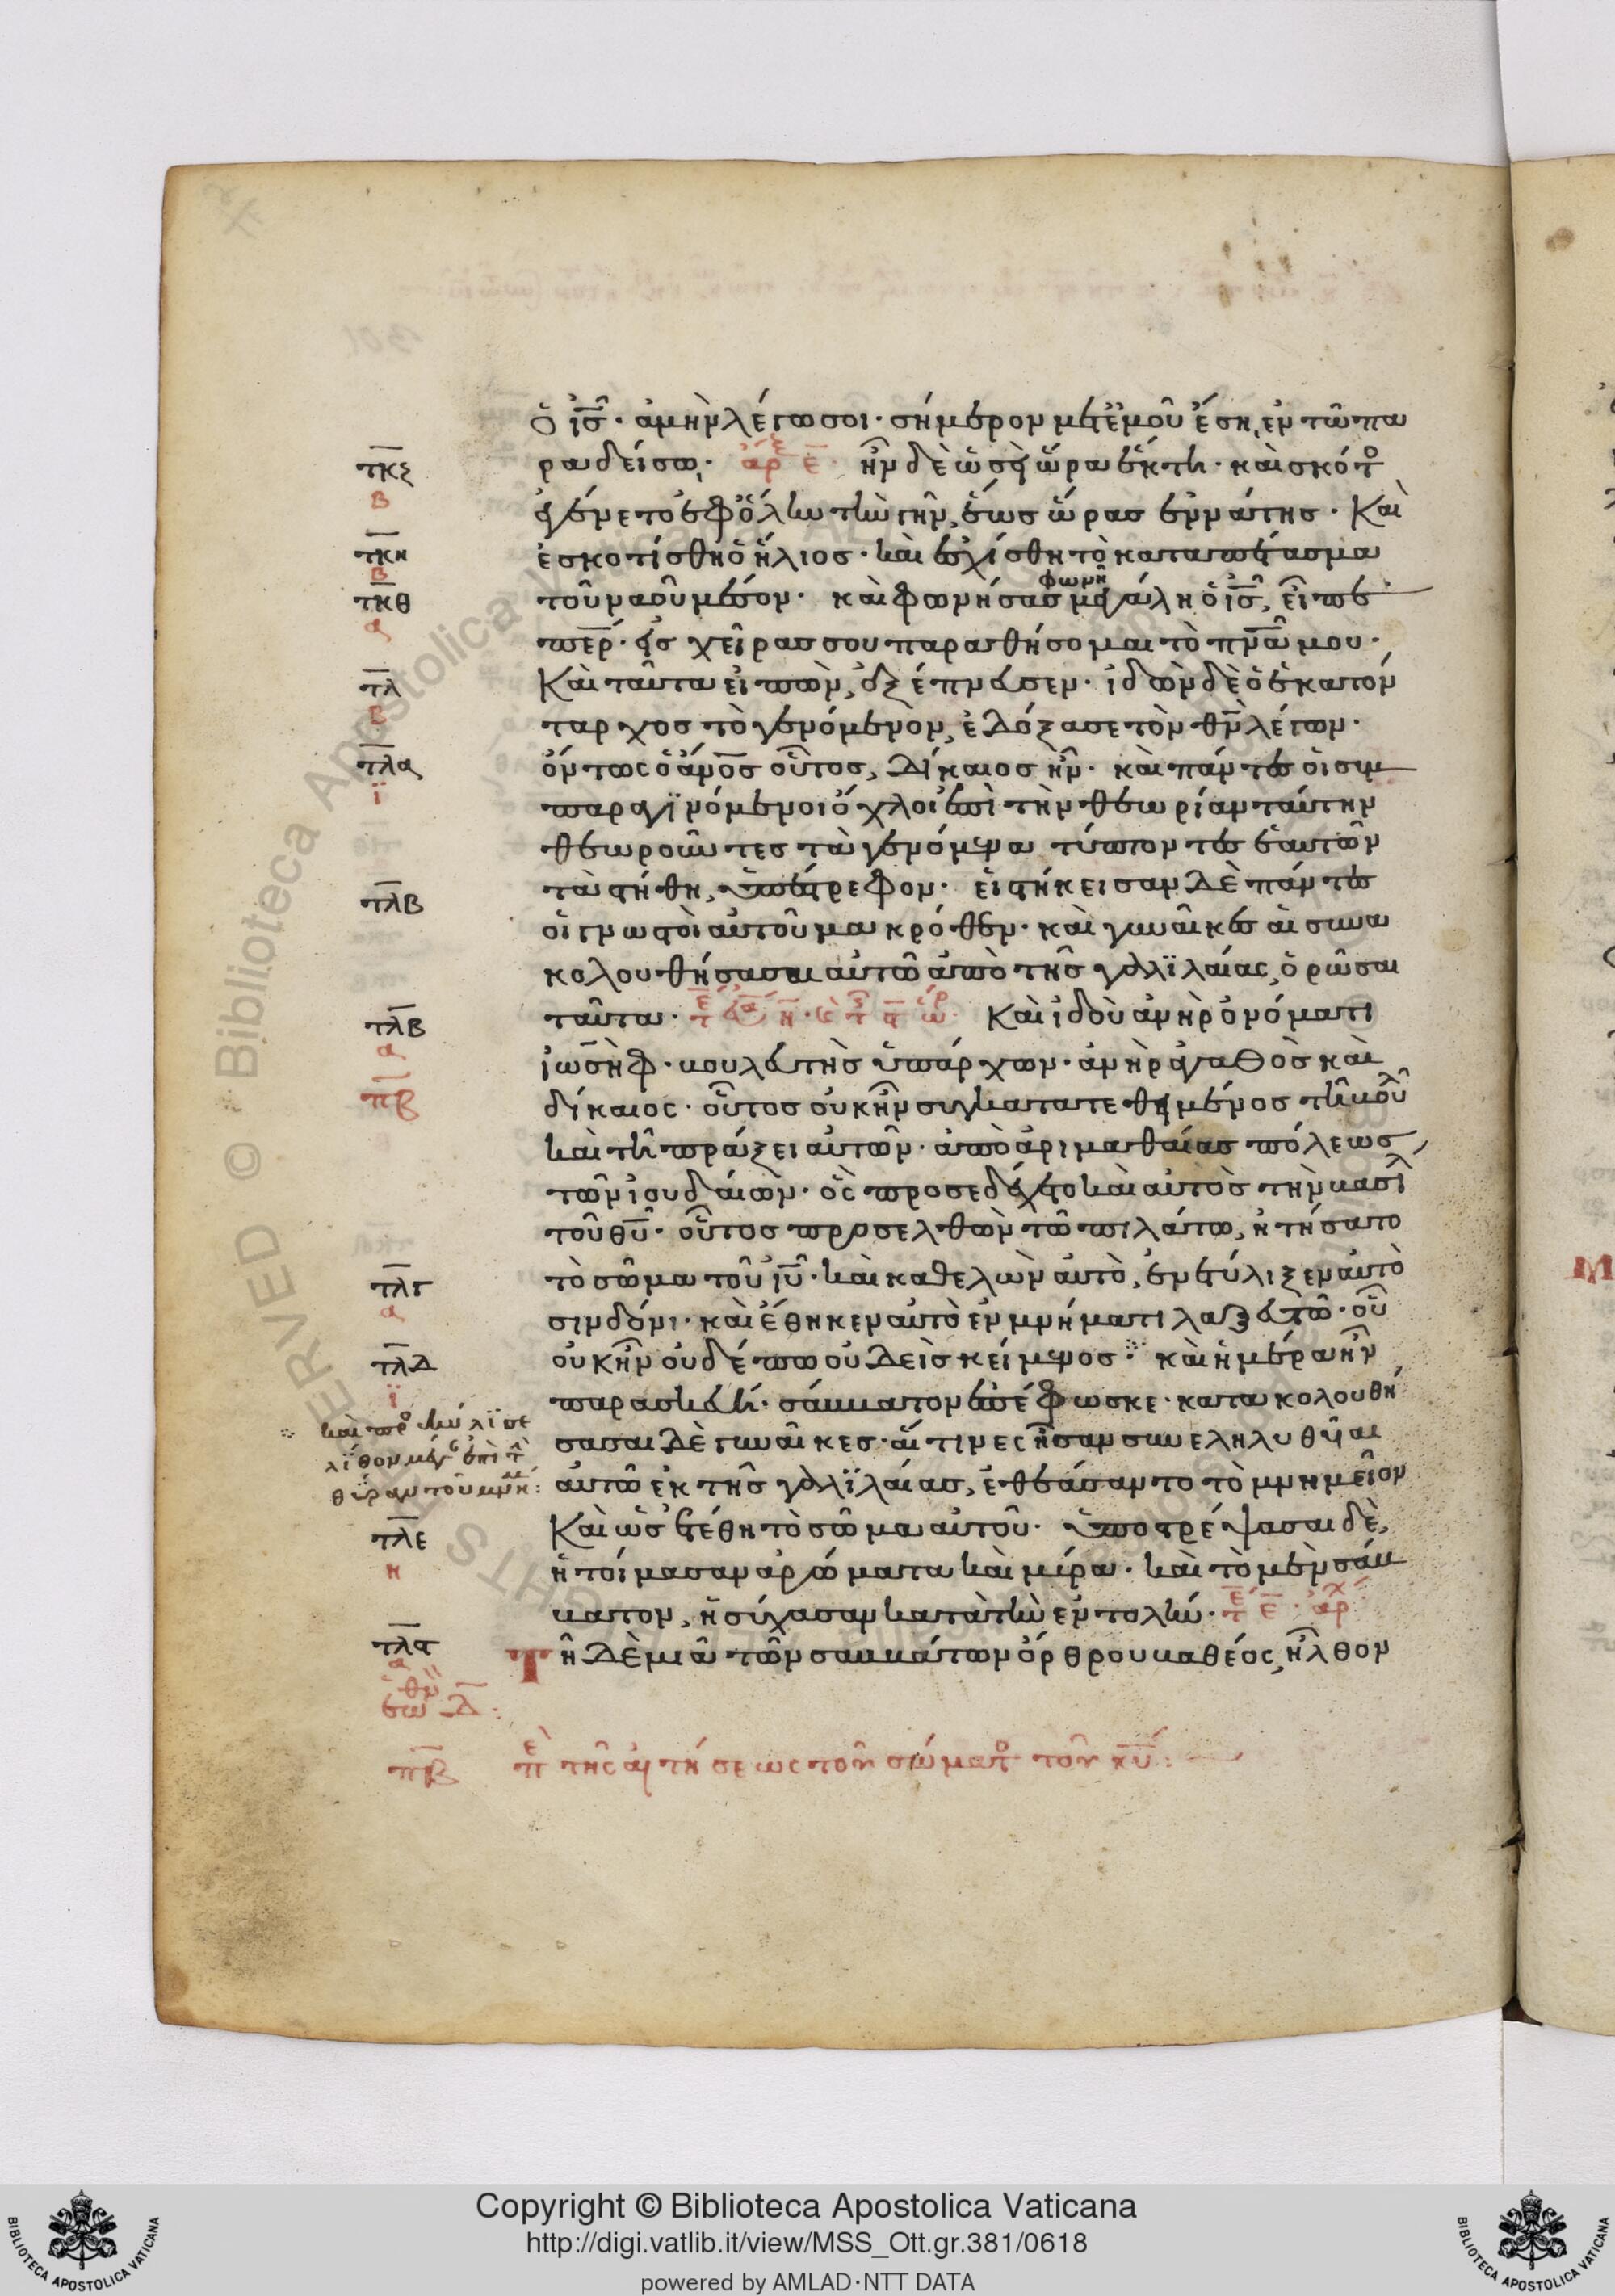 ὁ ἰ̅ς̅· ἀμὴν λέγω σοι· σήμερον μετ' ἐμοῦ ἔση, ἐν τῶ πα
τκζ
ραδείσω· ἀρξ ε̅ ἦν δὲ ὡσεὶ ὥρα ἕκτη· καὶ σκότος
β
ἐγένετο ἐφ' ὅλην τὴν γῆν, ἕως ὥρας ἐννάτης· Καὶ
τκη
ἐσκοτίσθη ὁ ἥλιος· καὶ ἐσχίσθη το καταπέτασμα
β
τκθ
τοῦ ναοῦ μέσον· καὶ φωνήσας φωνῆ μεγάλη ὁ ἰ̅ς̅, εἶπε
α
πε̅ρ̅· εἰς χεῖρας σου παραθήσομαι τὸ πν̅α̅ μου·
τλ
Καὶ ταῦτα εἰπὼν, ἐξέπνευσεν· ἰδὼν δὲ ὁ ἑκατόν
β
ταρχος τὸ γενόμενον, ἐδόξασε τὸν θ̅ν̅ λέγων·
τλα
ὄντως ὁ ἀ̅ν̅ο̅ς̅ οὗτος, δίκαιος ἦν· καὶ πάντες οἱ συμ
ϊ
παραγϊνόμενοι ὄχλοι ἐπὶ τὴν θεωρίαν ταύτην
θεωροῦντες τὰ γενόμενα τύπτοντες ἑαυτῶν
τὰ στήθη, ὑπέστρεφον· εἱστήκεισαν δὲ πάντες
τλβ
οἱ γνωστοὶ αὐτοῦ μακρόθεν· καὶ γυναῖκες αἱ συνα
κολουθήσασαι αὐτῶ ἀπὸ τῆς γαλϊλαίας, ὁρῶσαι
τλβ
ταῦτα· Καὶ ἰδοὺ ἀνὴρ ὀνόματι
α
ἰωσὴφ· βουλευτὴς ὑπάρχων· ἀνὴρ ἀγαθὸς καὶ
πβ
δίκαιος· οὗτος οὐκ ἦν συγκατατεθειμένος τῆ βουλῆ
καὶ τῆ πράξει αὐτῶν· ἀπὸ ἀριμαθαίας πόλεως
τῶν ἰουδαίων· ὃς προσεδέχετο καὶ αὐτὸς τὴν βασιλ
τοῦ θ̅υ̅· οὗτος προσελθὼν τῶ πιλάτω, ἠτήσατο
τλγ
τὸ σῶμα τοῦ ἰ̅υ̅· καὶ καθελὼν αὐτὸ, ἐνετύλιξεν αὐτὸ
α
σινδόνι· καὶ ἔθηκεν αὐτὸ ἐν μνήματι λαξευτῶ· οὗ
τλδ
οὐκ ἦν οὐδέπω οὐδεὶς κείμενος· καὶ ἡμέρα ἦν
ϊ
παρασκευή· σάββατον ἐπέφωσκε· κατακολουθή
καὶ προσεκύλϊσε
σασαι δὲ γυναῖκες· αἵτινες ἦσαν συνεληλυθυῖαι
λίθον μέγ ἐπὶ τ
θύραν τοῦ μνη:
αὐτῶ ἐκ τῆς γαλϊλαίας, ἐθεάσαντο τὸ μνημεῖον
Καὶ ὡς ἐτέθη τὸ σῶμα αὐτοῦ· ὑποστρέψασαι δὲ,
τλε
ἡτοίμασαν ἀρώματα καὶ μύρα· καὶ τὸ μὲν σάβ
η
βατον, ἡσύχασαν κατὰ τὴν ἐντολήν· τ ε̅· ἀρχ
τλϛ
Τῆ δὲ μιᾶ τῶν σαββάτων ὄρθρου βαθέος, ἦλθον
α
ἑωθιν δ̅:
πβ πε τῆς αἰτήσεως τοῦ σώματος τοῦ χ̅υ̅:
Copyright © Biblioteca Apostolica Vaticana
http://digi.vatlib.it/view/MSS_Ott.gr.381/0618
powered by AMLAD·NTT DATA
BIBLIOTECA APOSTOLICA VATICANA
BIBLIOTECA APOSTOLICA VATICANA